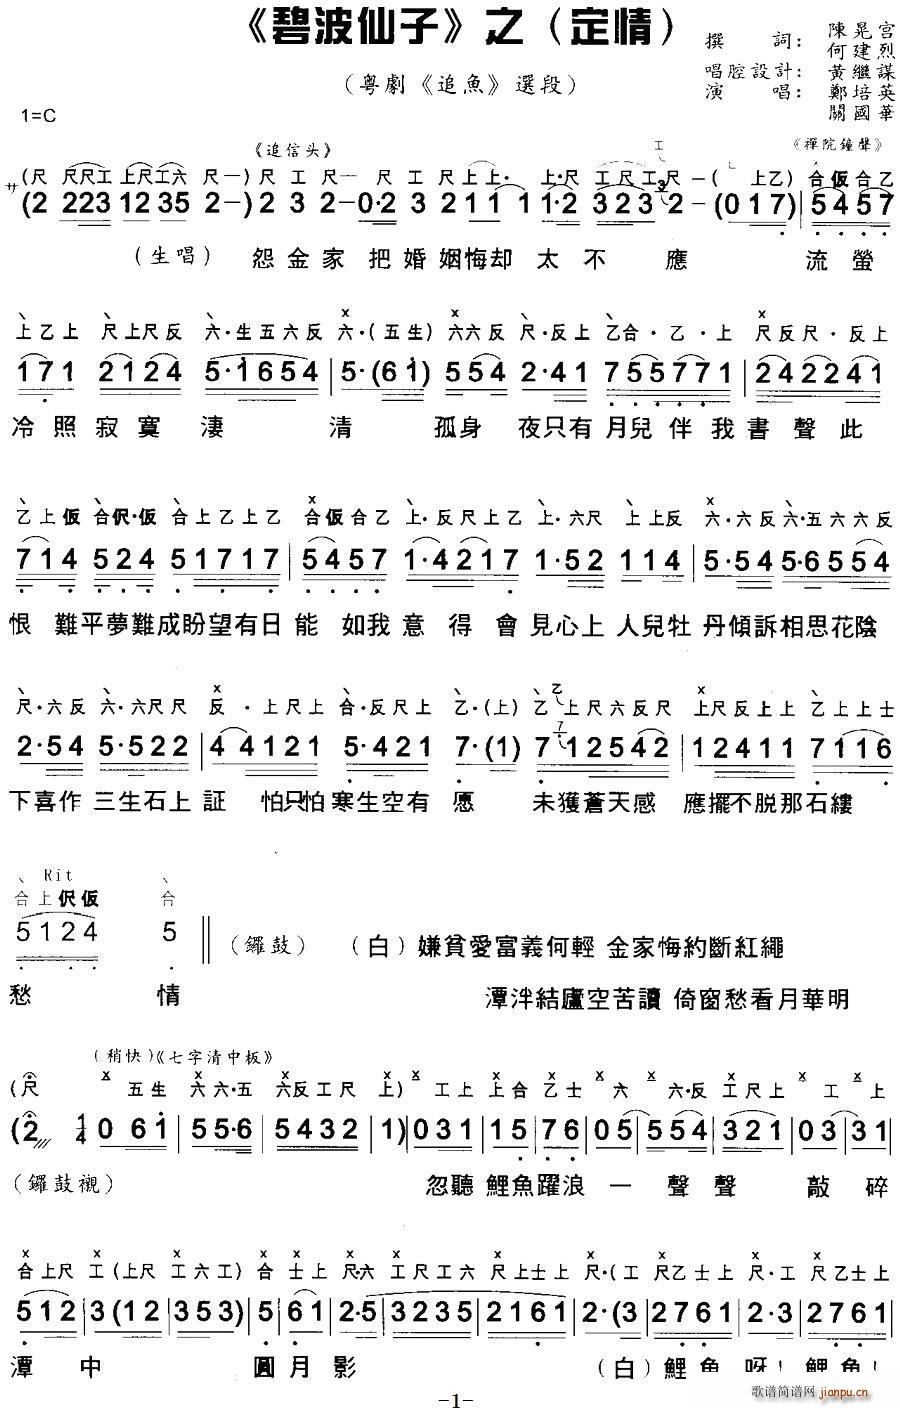 《碧波仙子》之（定情）
（粤劇《追魚》選段）
撰 詞： 陳晃宫
何建烈
唱腔設計： 黄繼謀
演 唱： 鄭培英
關國華
1=C
《追信头》 《禪院鐘聲》
サ (尺 尺尺工 上尺工六 尺一) 尺 工 尺一 尺 工 尺 上上· 上·尺 工尺工尺 一( 上乙) 合仮合乙
(2 223 1235 2-) 2 3 2 -0·2 3 211 1 1·2 323 2 -(017) | 5457
（生唱） 怨金家 把婚姻悔却 太不應 流螢
上乙上 尺上尺反 六·生五六反 六·(五生) 六六反 尺·反上 乙合·乙·上 尺反尺·反上
171 2124 5·1654 | 5·(61) 554 2·41 755771 | 242241
冷照寂寞淒 清 孤身 夜只有月兒伴我書聲此
乙上仮 合伬·仮 合上乙上乙 合仮合乙 上·反尺上乙 上·六尺 上上反 六·六反 六·五六六反
714 524 51717 | 5457 1·4217 1·52 114 | 5·54 5·6554
恨 難平夢難成盼望有日能 如我意得會見心上人兒牡丹傾訴相思花陰
尺·六反 六·六尺尺 反·上尺上 合·反尺上 乙·(上) 乙上尺六反尺 上尺反上上 乙上上士
2·54 5·522 | 4 4121 5·421 7·(1) 7 12542 | 12411 7116
下喜作三生石上証 怕只怕寒生空有愿 未獲蒼天感應擺不脱那石縷
Rit
合上伬仮 合
5124 5 ‖ （鑼鼓） （白）嫌貧愛富義何輕 金家悔約斷紅繩
愁 情 潭泮結廬空苦讀 倚窗愁看月華明
（稍快）《七字清中板》
(尺 五生 六六·五 六反工尺 上) 工上 上合 乙士 六 六·反 工尺上 工 上
(2 1/4 0 61 | 55·6 | 5432 | 1) | 031 | 15 | 76 | 05 | 554 | 321 | 03 | 31 |
（鑼鼓襯） 忽聽鯉魚躍浪一聲聲敲碎
合上尺 工 (上尺 工六工) 合 士上 尺·六 工尺工六 尺上士上 尺·(工 尺乙士上 尺·工 尺乙士上
512 | 3 (12 | 353) | 5 | 61 | 2·5 | 3235 | 2161 | 2·(3 | 2761 | 2·3 | 2761 |
潭 中 圓月影 （白）鯉魚呀！鯉魚！
-1-
歌谱简谱网 jianpu.cn